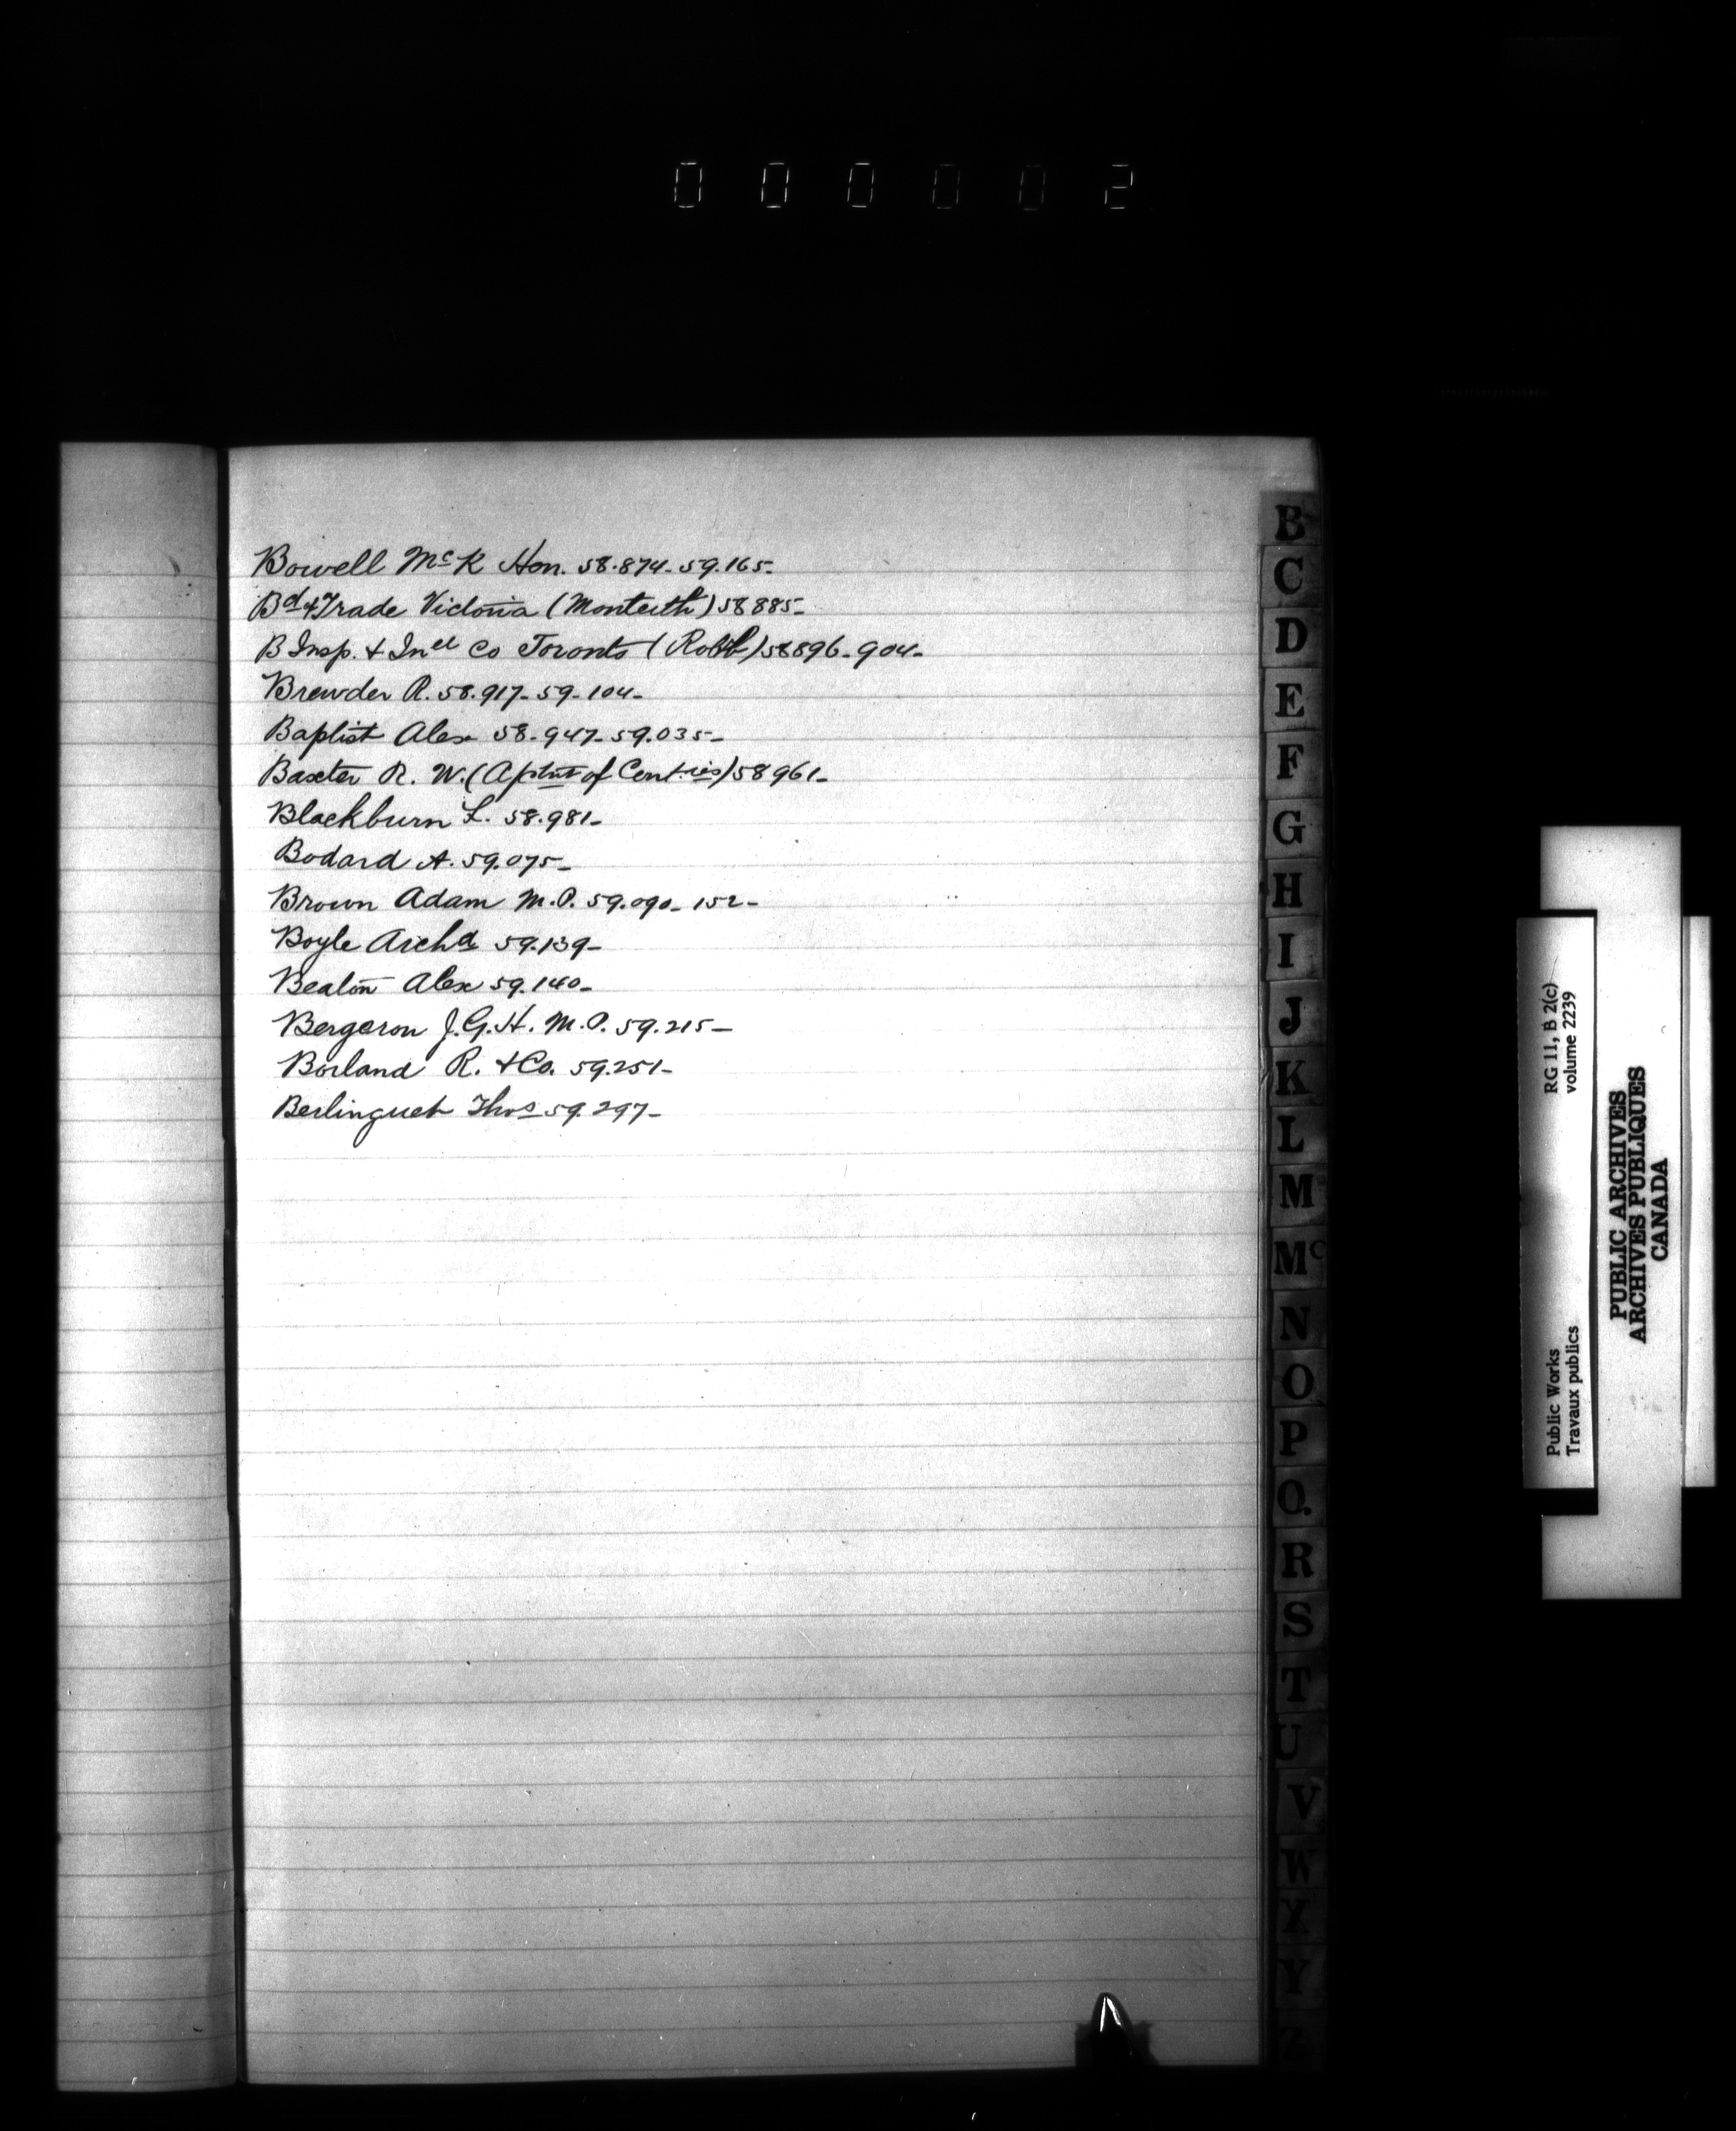 000002
Bowell McK Hon. 58.874-59.165-
Bd of Trade Victoria (Monteith) 58885-
B Insp. & Ince Co Toronto (Robb) 58896-904-
Brewder R. 58.917-59-104-
Baptist Alex 58-947-59.035-
Baxter R. W. (Aptmt of Cent.ries) 58961-
Blackburn L. 58.981-
Bodard A. 59.075-
Brown Adam M.P. 59.090-152-
Boyle Archd 59.139-
Beaton Alex 59.140-
Bergeron J.G.H. M.P. 59.215-
Borland R. & Co. 59.251-
Berlinguet Thos 59.297-
B
C
D
E
F
G
H
I
J
K
L
M
Mc
N
O
P
Q.
R
S
T
U
V
W
X
Y
Z
RG 11, B 2(c)
volume 2239
Public Works
Travaux publics
PUBLIC ARCHIVES
ARCHIVES PUBLIQUES
CANADA